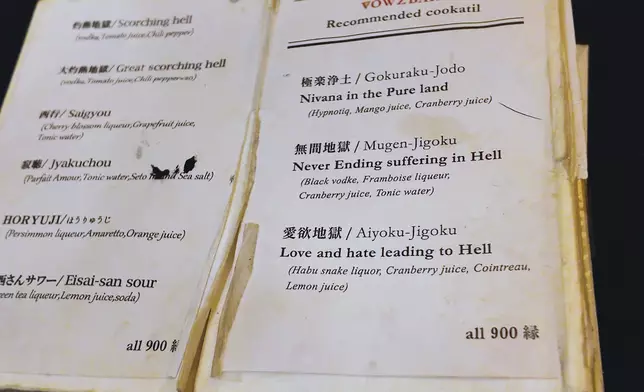 灼熱地獄/Scorching hell
(vodka,Tomato juice,Chili pepper)
大灼熱地獄/Great scorching hell
(vodka,Tomato juice,Chili pepper×20)
西行/Saigyou
(Cherry blossom liqueur,Grapefruit juice,
Tonic water)
寂聴/Jyakuchou
(Parfait Amour,Tonic water,Seto Sea salt)
HORYUJI/ほうりゅうじ
(Persimmon liqueur,Amaretto,Orange juice)
西さんサワー/Eisai-san sour
een tea liqueur,Lemon juice,soda)
all 900
VOWZBAR
Recommended cookatil
極楽浄土/Gokuraku-Jodo
Nivana in the Pure land
(Hypnotiq, Mango juice, Cranberry juice)
無間地獄/Mugen-Jigoku
Never Ending suffering in Hell
(Black vodke, Framboise liqueur,
Cranberry juice, Tonic water)
愛欲地獄/Aiyoku-Jigoku
Love and hate leading to Hell
(Habu snake liquor, Cranberry juice, Cointreau,
Lemon juice)
all 900 縁